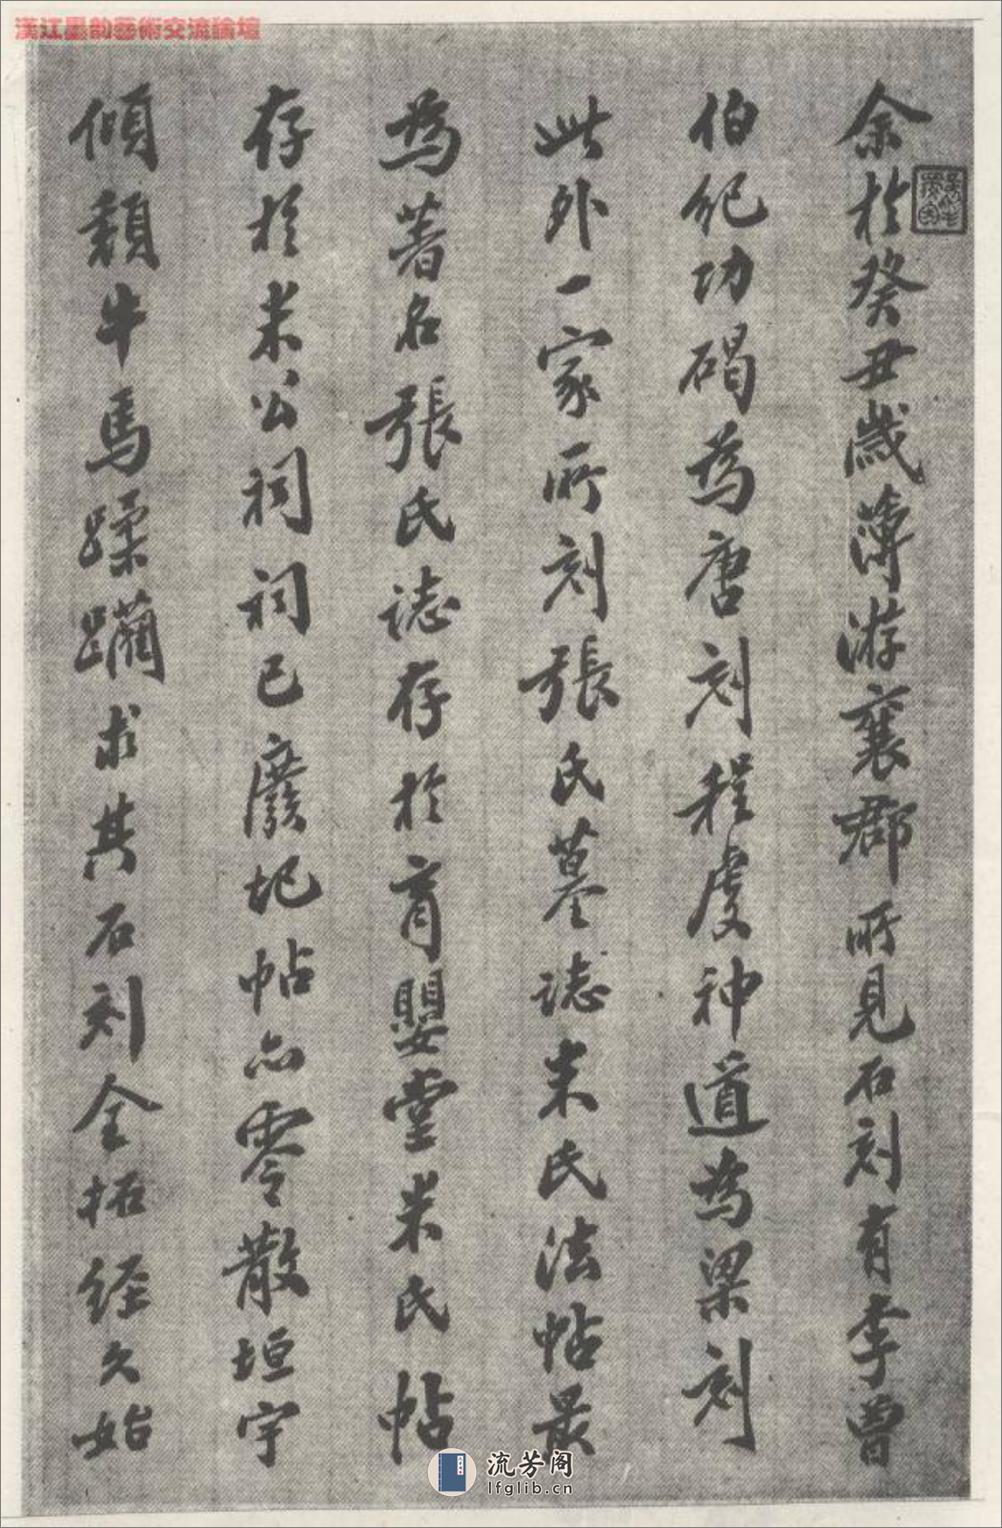 漢江墨韵藝術交流論壇
余於癸丑歲薄游襄郡所見石刻有李曾
伯紀功碣為唐刻程虔神道為梁刻
此外一家所刻張氏墓誌米氏法帖最
為著名張氏誌存於育嬰堂米氏帖
存於米公祠祠已廢圯帖亦零散垣宇
傾頹牛馬蹂躪求其石刻全拓經久始
流芳阁
lfglib.cn